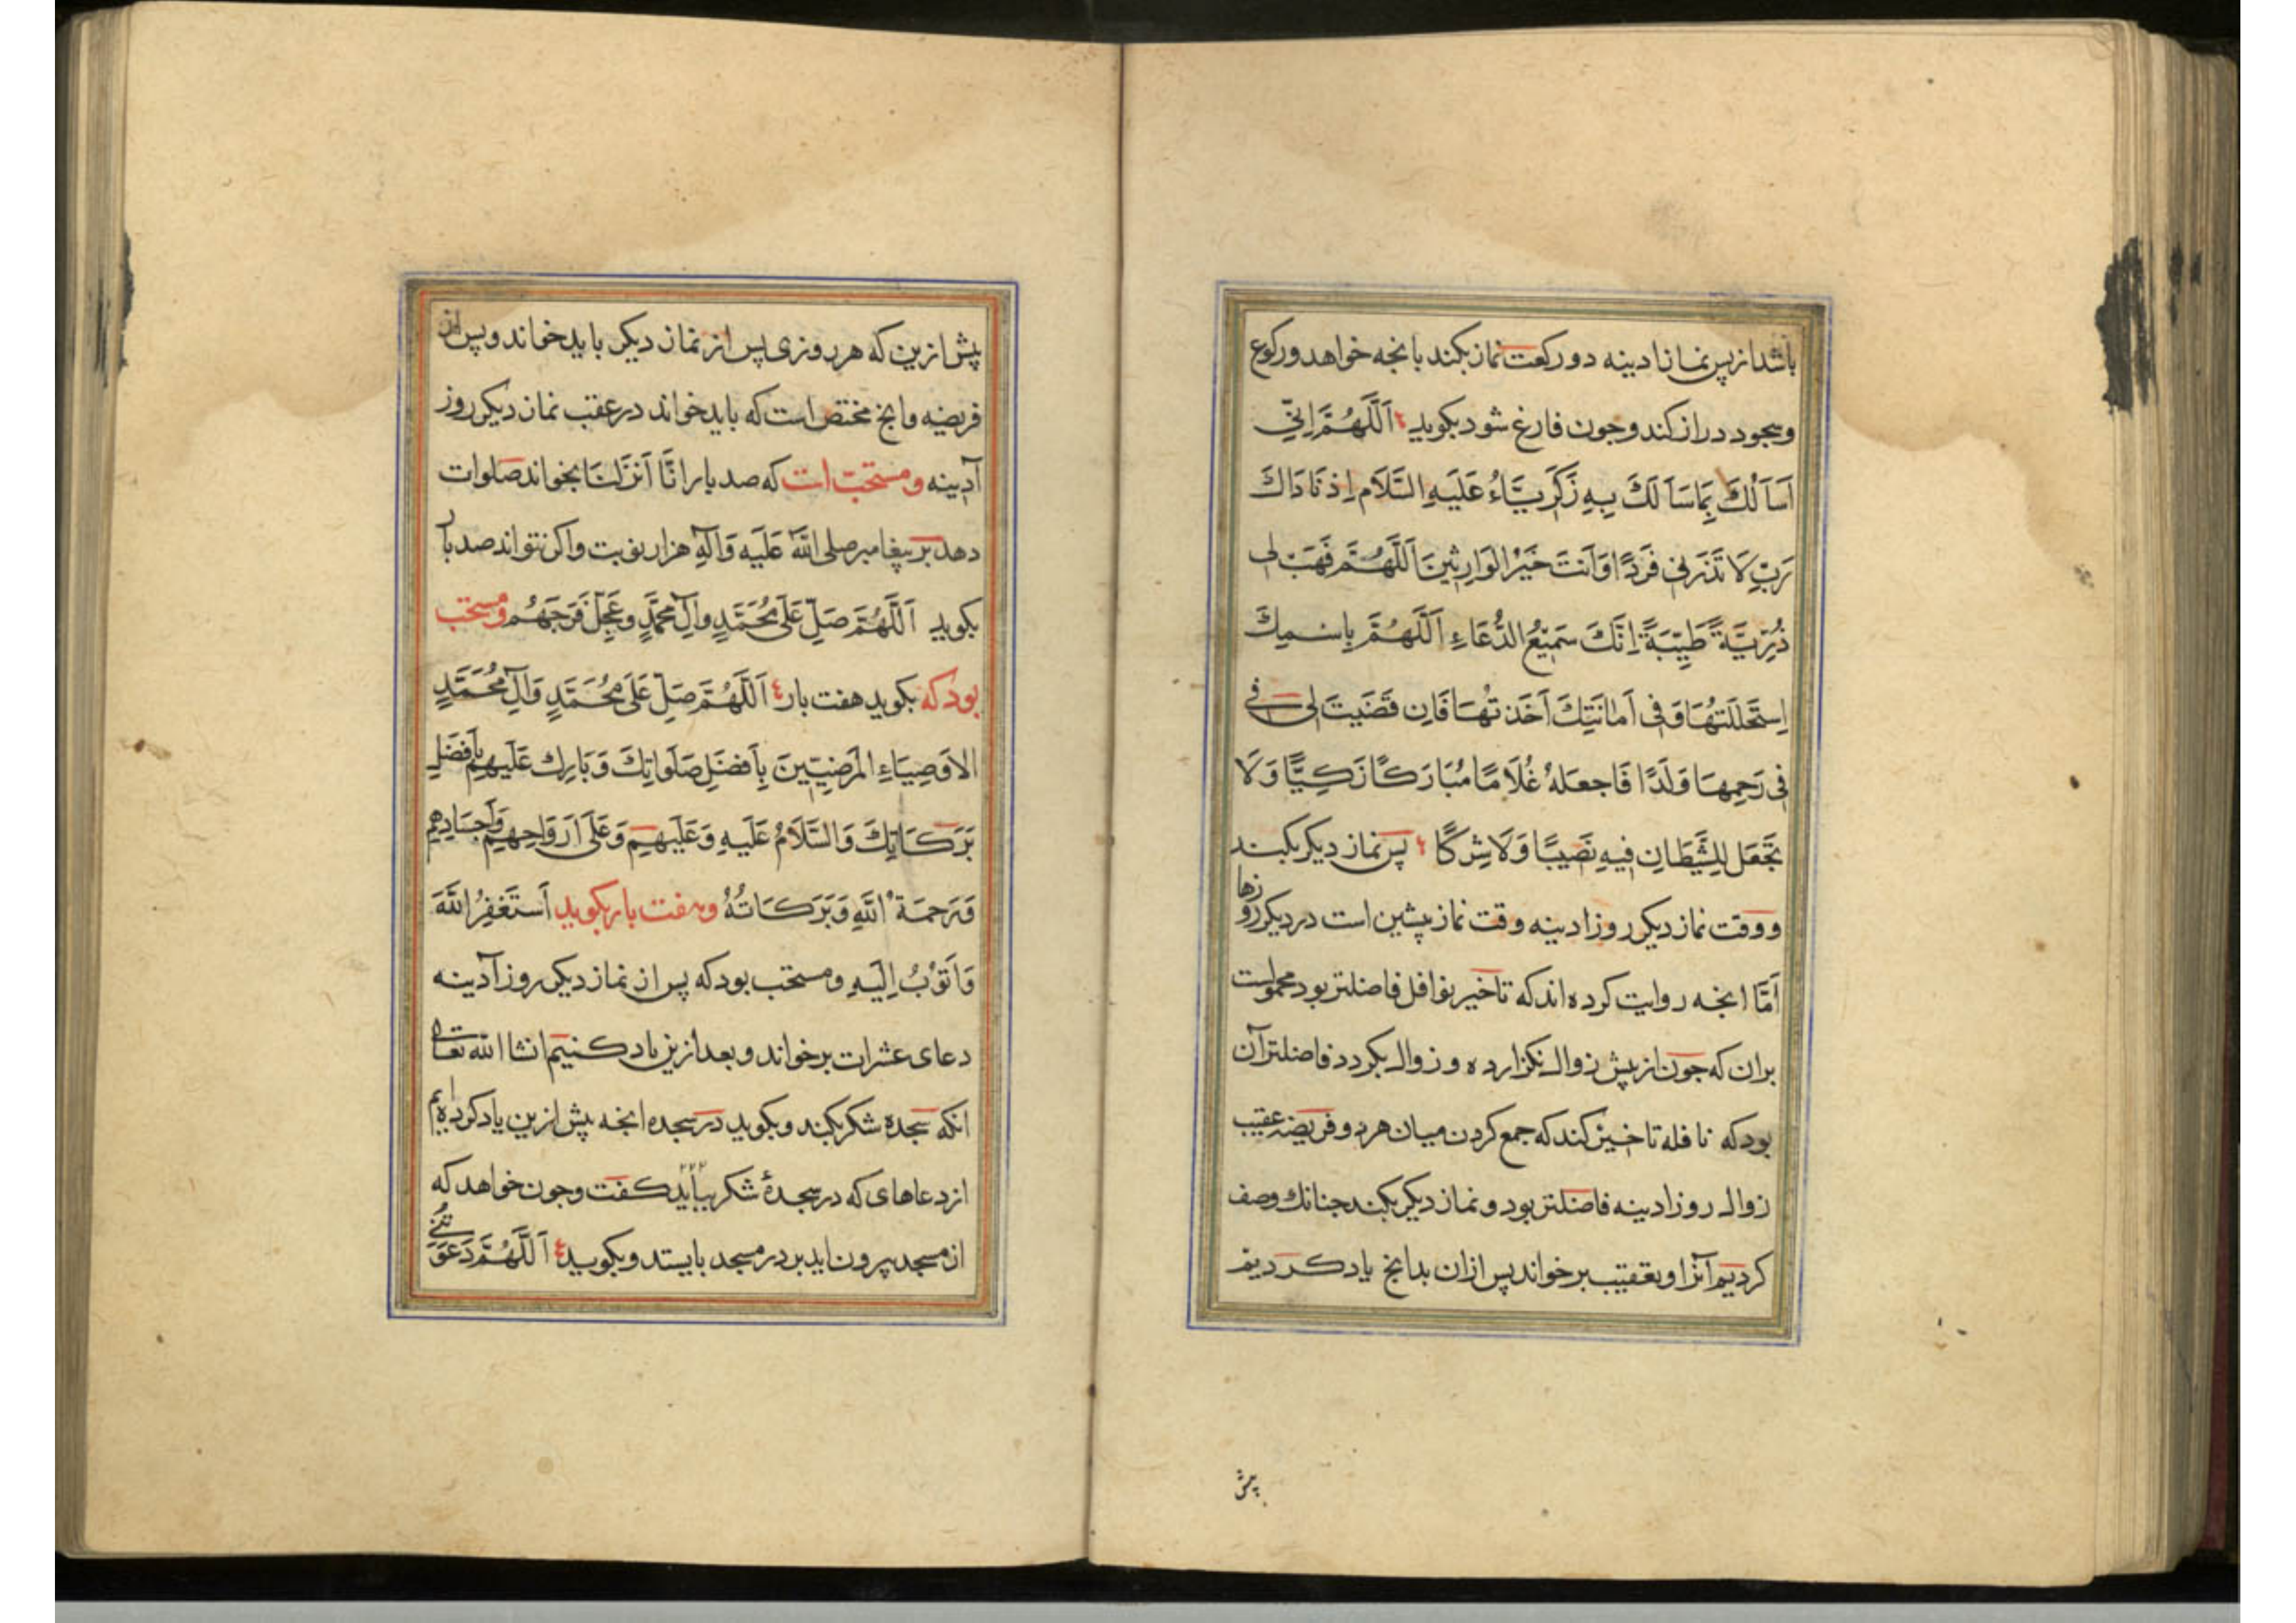 باشد از پس نماز ادینه دو رکعت نماز بکند بانجه خواهد و رکوع
وسجود دراز کند وجون فارغ شود بکوید اَللَّهُمَّ اِنِّي
اَسْاَلُكَ بِمَا سَاَلَكَ بِهِ زَكَرِيَّاءُ عَلَيهِ السَّلَام اِذ نَادَاكَ
رَبِّ لَا تَذَرنِي فَردًا وَاَنتَ خَيْرُ الوَارِثِينَ اَللَّهُمَّ فَهَبْ لِي
ذُرِّيَّةً طَيِّبَةً اِنَّكَ سَمِيْعُ الدُّعَاءِ اَللَّهُمَّ بِاسْمِكَ
اِستَحْلَلتُهَا وَفِي اَمَانَتِكَ اَخَذتُهَا فَاِن قَضَيتَ لِي فِي
فِي رَحِمِهَا وَلَدًا فَاجعَلهُ غُلَامًا مُبَارَكًا زَكِيًّا وَلَا
تَجْعَل لِلشَّيطَانِ فِيهِ نَصِيبًا وَلَا شِركًا پس نماز دیکر بکند
ووقت نماز دیکر روز ادینه وقت نماز پیشین است در دیکر روزها
اَمَّا انجه روایت کرده اند که تاخیر نوافل فاضلتر بود محمولست
بران که جون از پیش زوال نکزارده و زوال بکردد فاضلتر آن
بود که نافله تاخیر کند که جمع کردن میان هر دو فریضه عقیب
زوال روز ادینه فاضلتر بود و نماز دیکر بکند جنانك وصف
کردیم آنرا وبعقیب برخواند پس ازان بدانج یاد کردیم
پیش
پیش ازین که هر روزی پس از نماز دیکر باید خواند و پس از
فریضه وانج مختص است که باید خواند در عقب نماز دیکر روز
آدینه ومستحبّ است که صد بار انَّا اَنزَلنَا بخواند صلوات
دهد بر پیغامبر صلی اللّه عَلَيه وَآلِهِ هزار نوبت واکر نتواند صد بار
بکوید اَللَّهُمَّ صَلِّ عَلَى مُحَمَّدٍ وآلِ محمَّدٍ وعَجِّل فَرَجَهُم ومستحب
بود که بکوید هفت بار اَللَّهُمَّ صَلِّ عَلَى مُحَمَّدٍ وَآلِ مُحَمَّدٍ
الاَوصِيَاءِ المَرضِيِّينَ بِاَفضَلِ صَلَوَاتِكَ وَبَارِك عَلَيهِم بِاَفضَلِ
بَرَكَاتِكَ وَالسَّلَامُ عَلَيهِ وَعَلَيهِم وَعَلَى اَروَاحِهِم وَاَجسَادِهِم
وَرَحمَةُ اللَّهِ وَبَرَكَاتُهُ وهفت بار بکوید اَستَغفِرُ اللَّهَ
وَاَتُوْبُ اِلَيهِ ومستحب بود که پس از نماز دیکر روز آدینه
دعای عشرات برخواند و بعد ازین یاد کنیم انشاا للّه تعالی
انکه سجده شکر بکند وبکوید در سجده انجه پیش ازین یاد کرده ایم
از دعاهای که در سجدهٔ شکر بباید کفت وجون خواهد که
از مسجد بیرون اید بر در مسجد بایستد وبکوید اَللَّهُمَّ دَعَوتَنِي